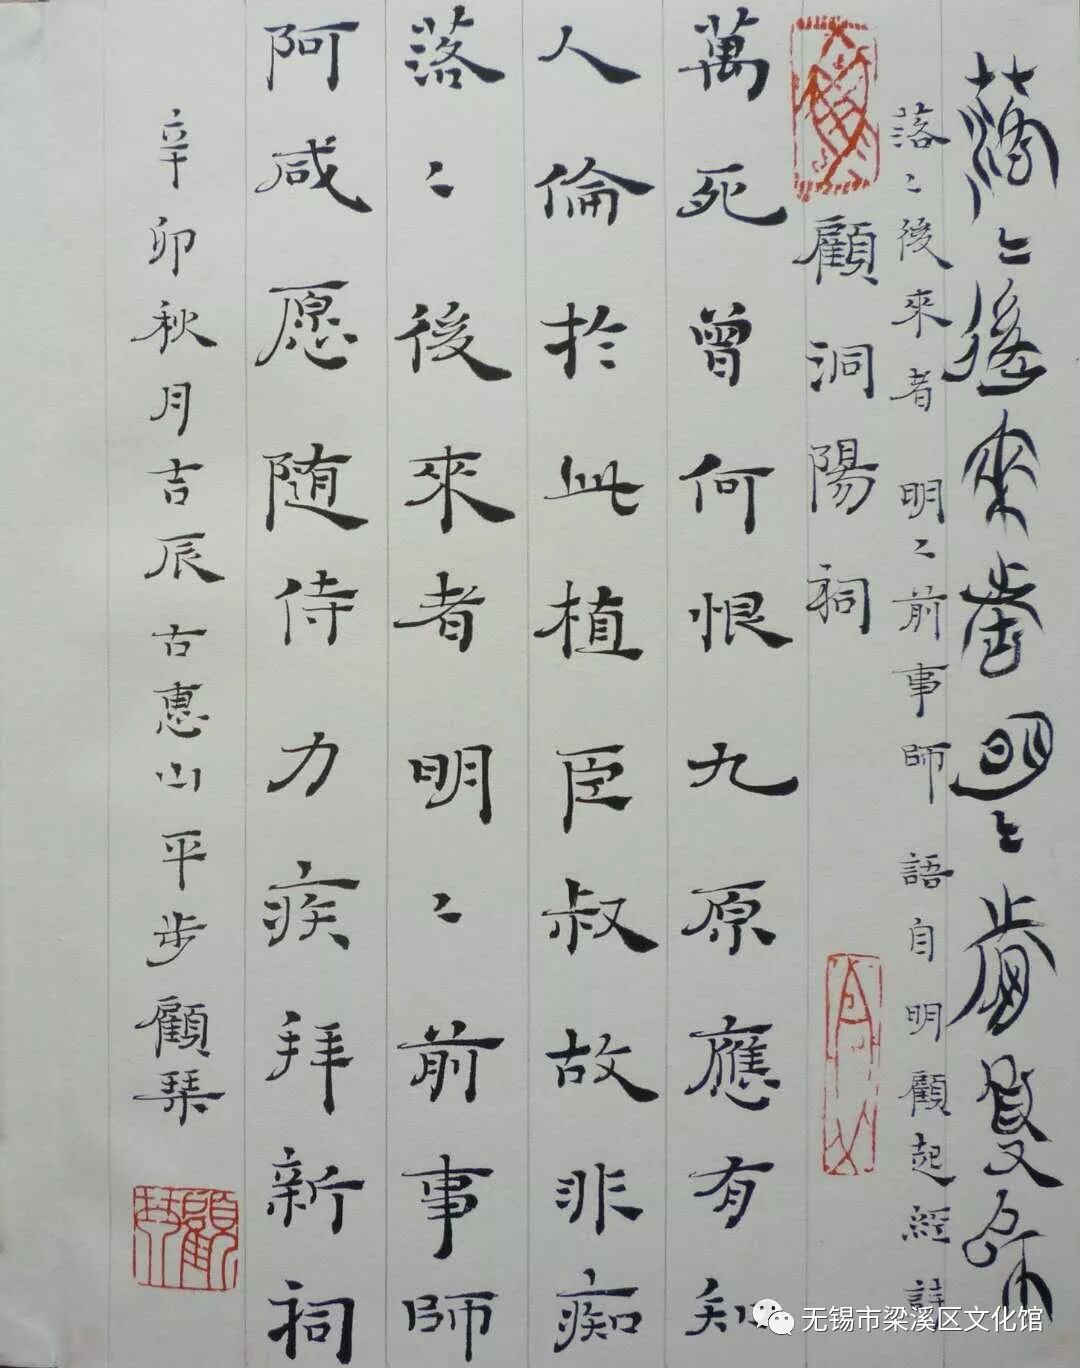 落〻後來者明〻前事師
落〻後來者明〻前事師語自明顧起經詩
顧洞陽祠
萬死曾何恨九原應有知
人倫於此植臣叔故非痴
落〻後來者明〻前事師
阿咸愿随侍力疾拜新祠
辛卯秋月吉辰古惠山平步顧琹
无锡市梁溪区文化馆